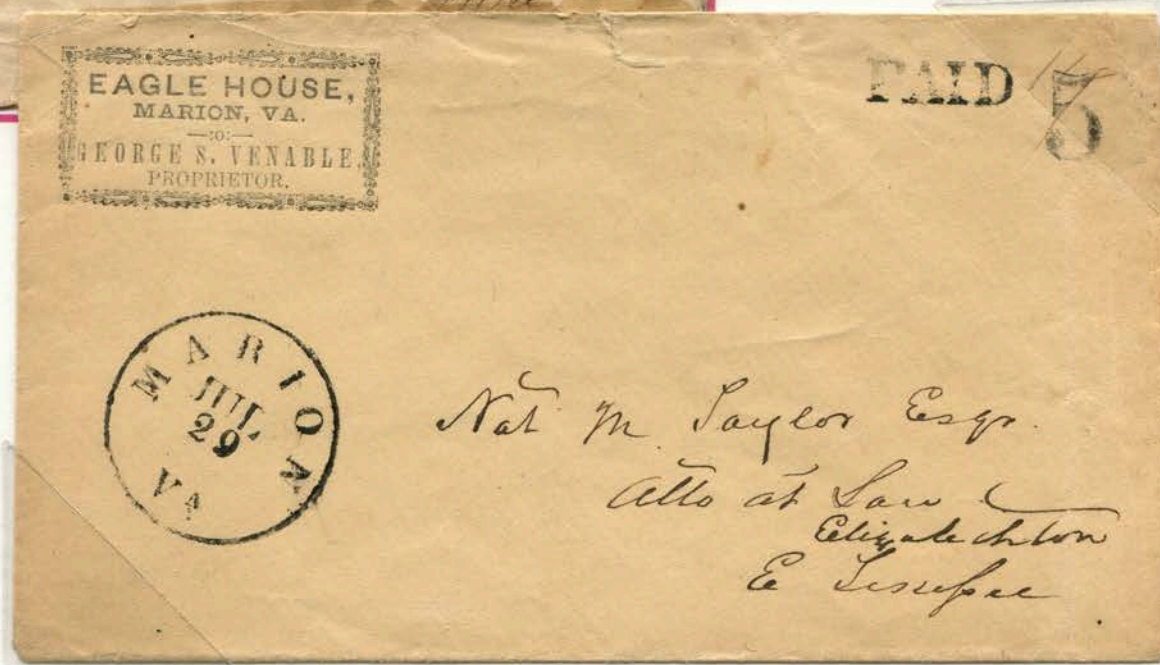 EAGLE HOUSE,
MARION, VA.
—:o:—
GEORGE S. VENABLE.
PROPRIETOR.
PAID 5
MARION
JUL
29
VA
Nat M. Taylor Esqr.
Atto at Law
Elizabethton
E Tennessee